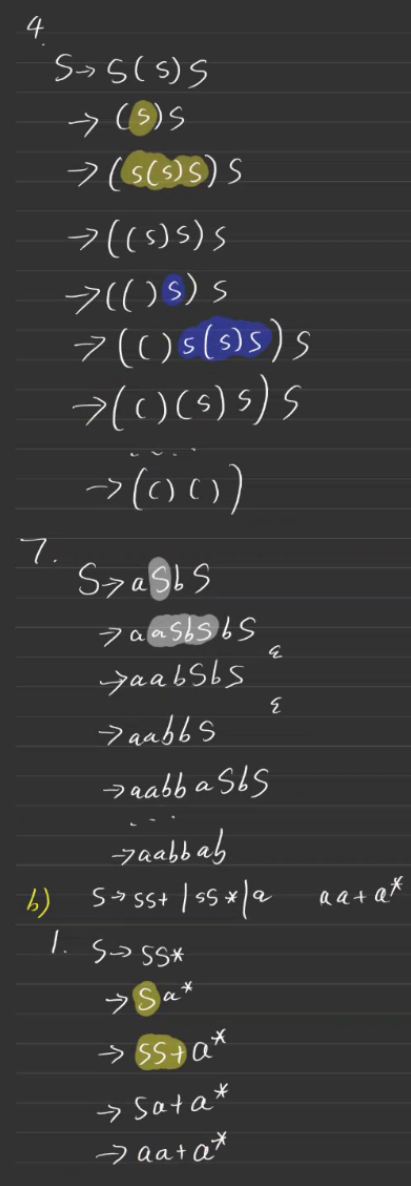 4.
S→ S(S)S
→ (S)S
→ (S(S)S)S
→ ((S)S)S
→ (()S)S
→ (()S(S)S)S
→ (()(S)S)S
....
→ (()())
7.
S→ aSbS
→ aaSbSbS
ε
→ aabSbS
ε
→ aabbS
→ aabbaSbS
...
→ aabbab
b) S→ SS+ | SS* | a aa+a*
1. S→ SS*
→ Sa*
→ SS+a*
→ Sa+a*
→ aa+a*